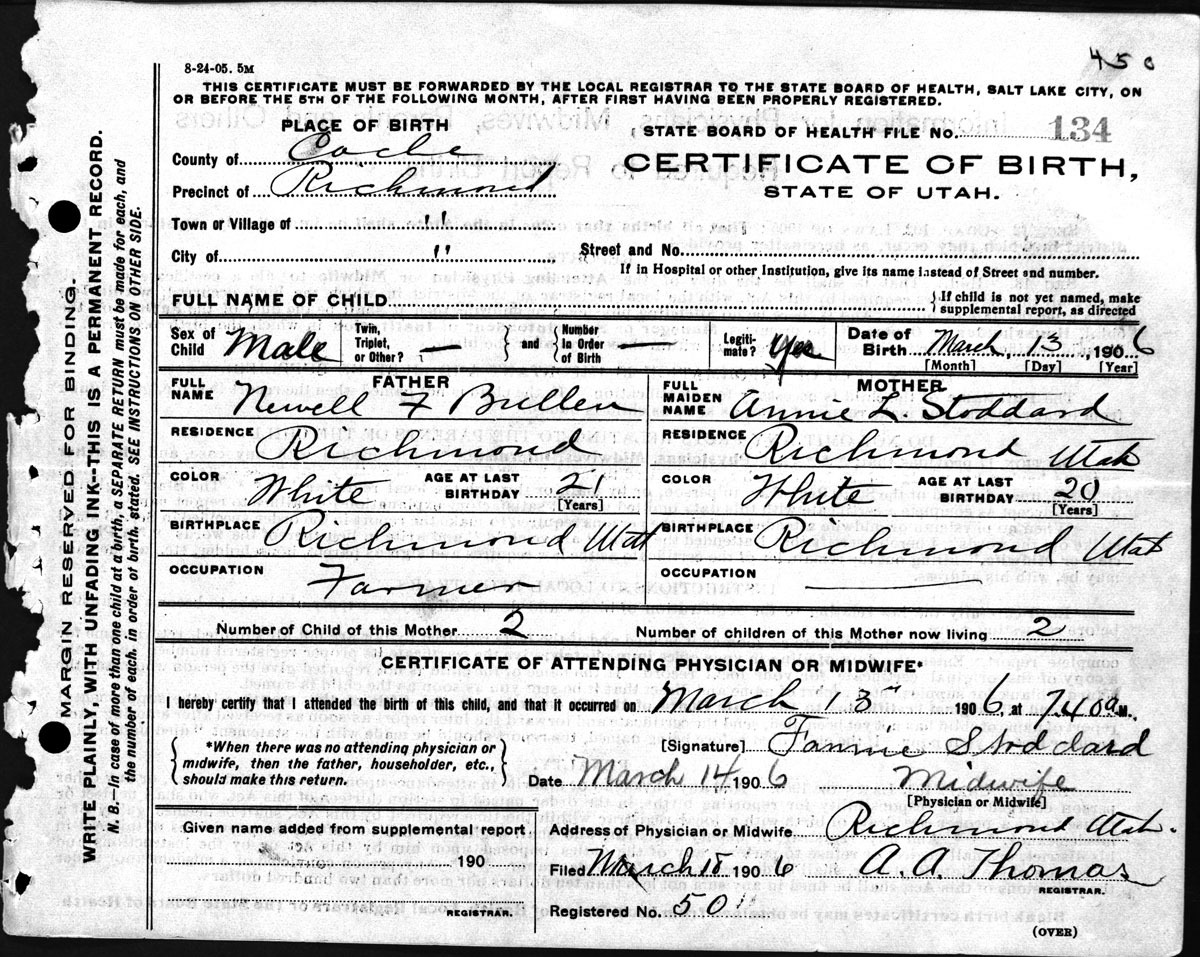 450
8-24-05. 5M
THIS CERTIFICATE MUST BE FORWARDED BY THE LOCAL REGISTRAR TO THE STATE BOARD OF HEALTH, SALT LAKE CITY, ON
OR BEFORE THE 5TH OF THE FOLLOWING MONTH, AFTER FIRST HAVING BEEN PROPERLY REGISTERED.
PLACE OF BIRTH
STATE BOARD OF HEALTH FILE NO. 134
County of Cache
CERTIFICATE OF BIRTH,
Precinct of Richmond
STATE OF UTAH.
Town or Village of "
City of " Street and No.
If in Hospital or other Institution, give its name instead of Street and number.
FULL NAME OF CHILD { If child is not yet named, make supplemental report, as directed
Sex of Child Male Twin, Triplet, or Other? — } and { Number in Order of Birth — Legiti- mate? Yes Date of Birth March 13 1906
[Month] [Day] [Year]
FATHER
FULL NAME Newell F Bullen
RESIDENCE Richmond
COLOR White AGE AT LAST BIRTHDAY 21
[Years]
BIRTHPLACE Richmond Utah
OCCUPATION Farmer
MOTHER
FULL MAIDEN NAME Annie L. Stoddard
RESIDENCE Richmond Utah
COLOR White AGE AT LAST BIRTHDAY 20
[Years]
BIRTHPLACE Richmond Utah
OCCUPATION —
Number of Child of this Mother 2 Number of children of this Mother now living 2
CERTIFICATE OF ATTENDING PHYSICIAN OR MIDWIFE*
I hereby certify that I attended the birth of this child, and that it occurred on March 13 1906, at 7.40 a M.
{ *When there was no attending physician or
midwife, then the father, householder, etc.,
should make this return. }
[Signature] Fannie Stoddard
Date March 14 1906 Midwife
[Physician or Midwife]
Given name added from supplemental report
Address of Physician or Midwife Richmond Utah.
190
Filed March 18 1906 A. A. Thomas
REGISTRAR.
REGISTRAR.
Registered No. 50
(OVER)
MARGIN RESERVED FOR BINDING.
WRITE PLAINLY, WITH UNFADING INK--THIS IS A PERMANENT RECORD.
N. B.—In case of more than one child at a birth, a SEPARATE RETURN must be made for each, and
the number of each, in order of birth, stated. SEE INSTRUCTIONS ON OTHER SIDE.